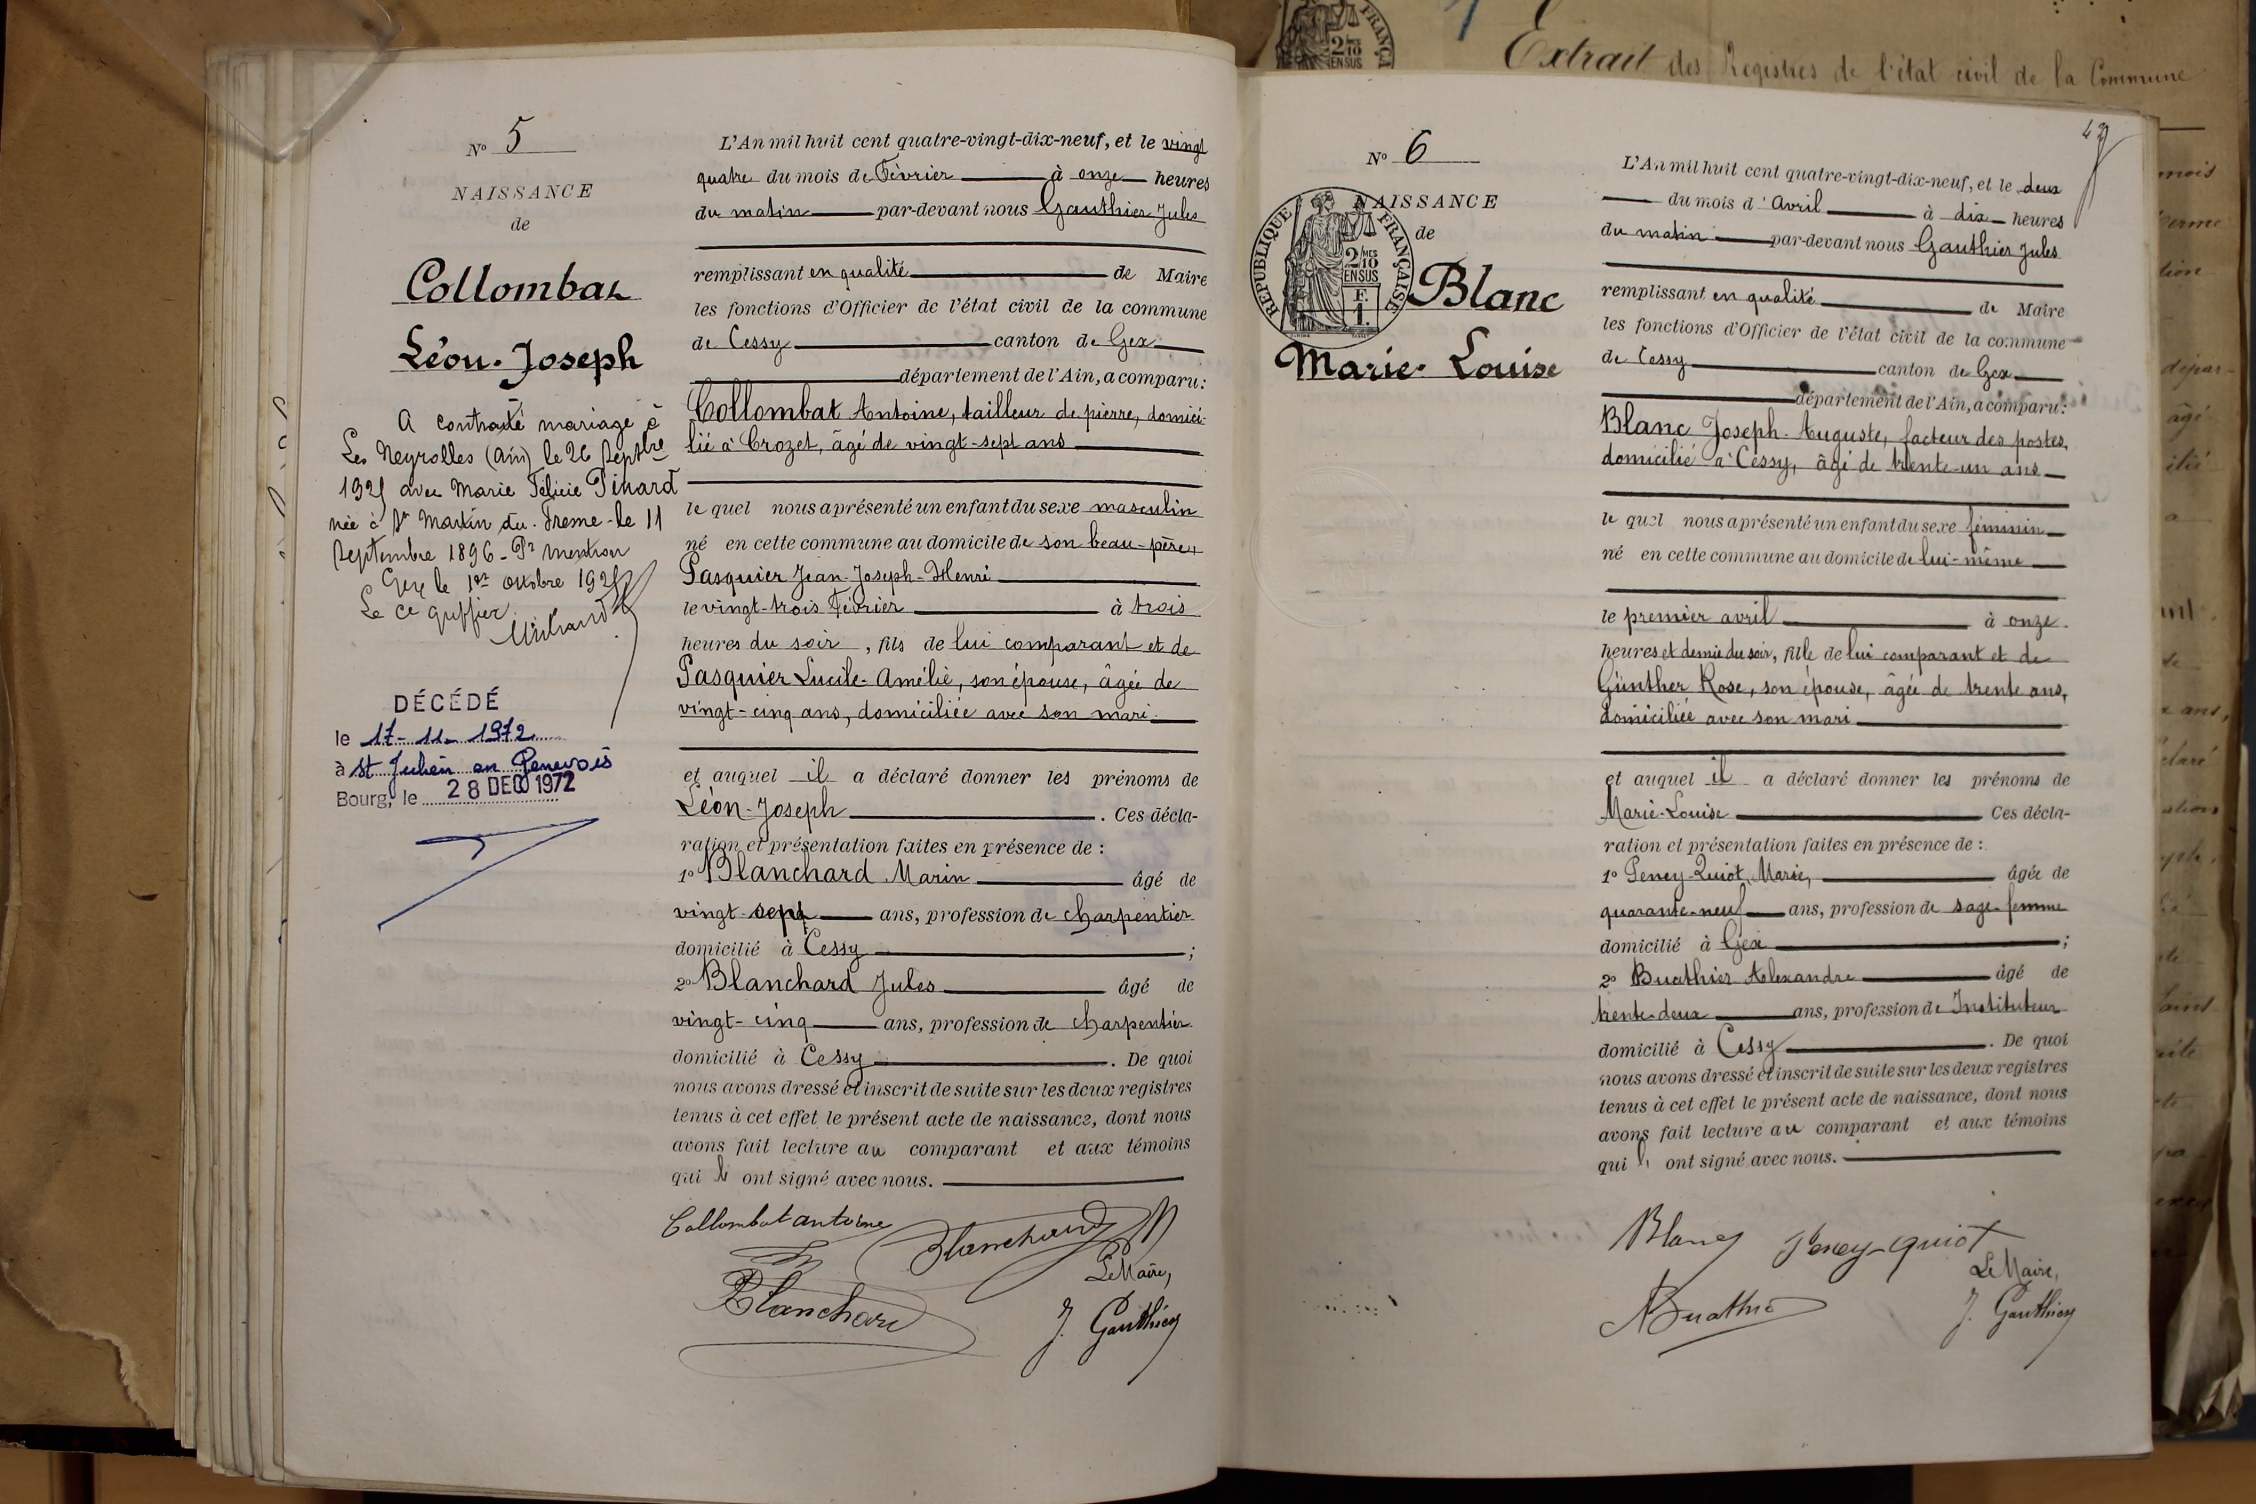 N° 5
NAISSANCE
de
Collombat
Léon-Joseph
A contracté mariage à
Les Neyrolles (Ain) le 26 Septbre
avec Marie Félicie Pinard
née à St Martin du Fresne le 11
Septembre 1896 - Pr mention
Gex le 1er octobre
Le Ce greffier
DÉCÉDÉ
le 17-11-1972
à St Julien en Genevois
Bourg, le 28 DEC 1972
L'An mil huit cent quatre-vingt-dix-neuf, et le vingt
quatre du mois de Février à onze heures
du matin par-devant nous Gauthier Jules
remplissant en qualité de Maire
les fonctions d'Officier de l'état civil de la commune
de Cessy canton de Gex
département de l'Ain, a comparu:
Collombat Antoine, tailleur de pierre, domici-
lié à Crozet, âgé de vingt-sept ans
le quel nous a présenté un enfant du sexe masculin
né en cette commune au domicile de son beau-père,
Pasquier Jean-Joseph-Henri
le vingt-trois Février à trois
heures du soir, fils de lui comparant et de
Pasquier Lucile-Amélie, son épouse, âgée de
vingt-cinq ans, domiciliée avec son mari.
et auquel il a déclaré donner les prénoms de
Léon-Joseph . Ces décla-
ration et présentation faites en présence de :
1° Blanchard Marin âgé de
vingt-sept ans, profession de charpentier
domicilié à Cessy ;
2° Blanchard Jules âgé de
vingt-cinq ans, profession de charpentier
domicilié à Cessy . De quoi
nous avons dressé et inscrit de suite sur les deux registres
tenus à cet effet le présent acte de naissance, dont nous
avons fait lecture au comparant et aux témoins
qui l' ont signé avec nous.
Collombat antoine Blanchard M
Le Maire,
Blanchard
J. Gauthier
Extrait des Registres de l'état civil de la Commune
49
N° 6
NAISSANCE
de
RÉPUBLIQUE FRANÇAISE
2/10 MES
EN SUS
F.
1.
Blanc
Marie-Louise
L'An mil huit cent quatre-vingt-dix-neuf, et le deux
du mois d'Avril à dix heures
du matin par-devant nous Gauthier Jules
remplissant en qualité de Maire
les fonctions d'Officier de l'état civil de la commune
de Cessy canton de Gex
département de l'Ain, a comparu:
Blanc Joseph-Auguste, facteur des postes,
domicilié à Cessy, âgé de trente-un ans
le quel nous a présenté un enfant du sexe féminin
né en cette commune au domicile de lui-même
le premier avril à onze
heures et demie du soir, fille de lui comparant et de
Günther Rose, son épouse, âgée de trente ans,
domiciliée avec son mari
et auquel il a déclaré donner les prénoms de
Marie-Louise Ces décla-
ration et présentation faites en présence de :
1° Peney-Quiot, Marie, âgée de
quarante-neuf ans, profession de sage-femme
domicilié à Gex ;
2° Buathier Alexandre âgé de
trente-deux ans, profession de Instituteur
domicilié à Cessy . De quoi
nous avons dressé et inscrit de suite sur les deux registres
tenus à cet effet le présent acte de naissance, dont nous
avons fait lecture au comparant et aux témoins
qui l' ont signé avec nous.
Blanc Peney-Quiot
Le Maire,
J. Gauthier